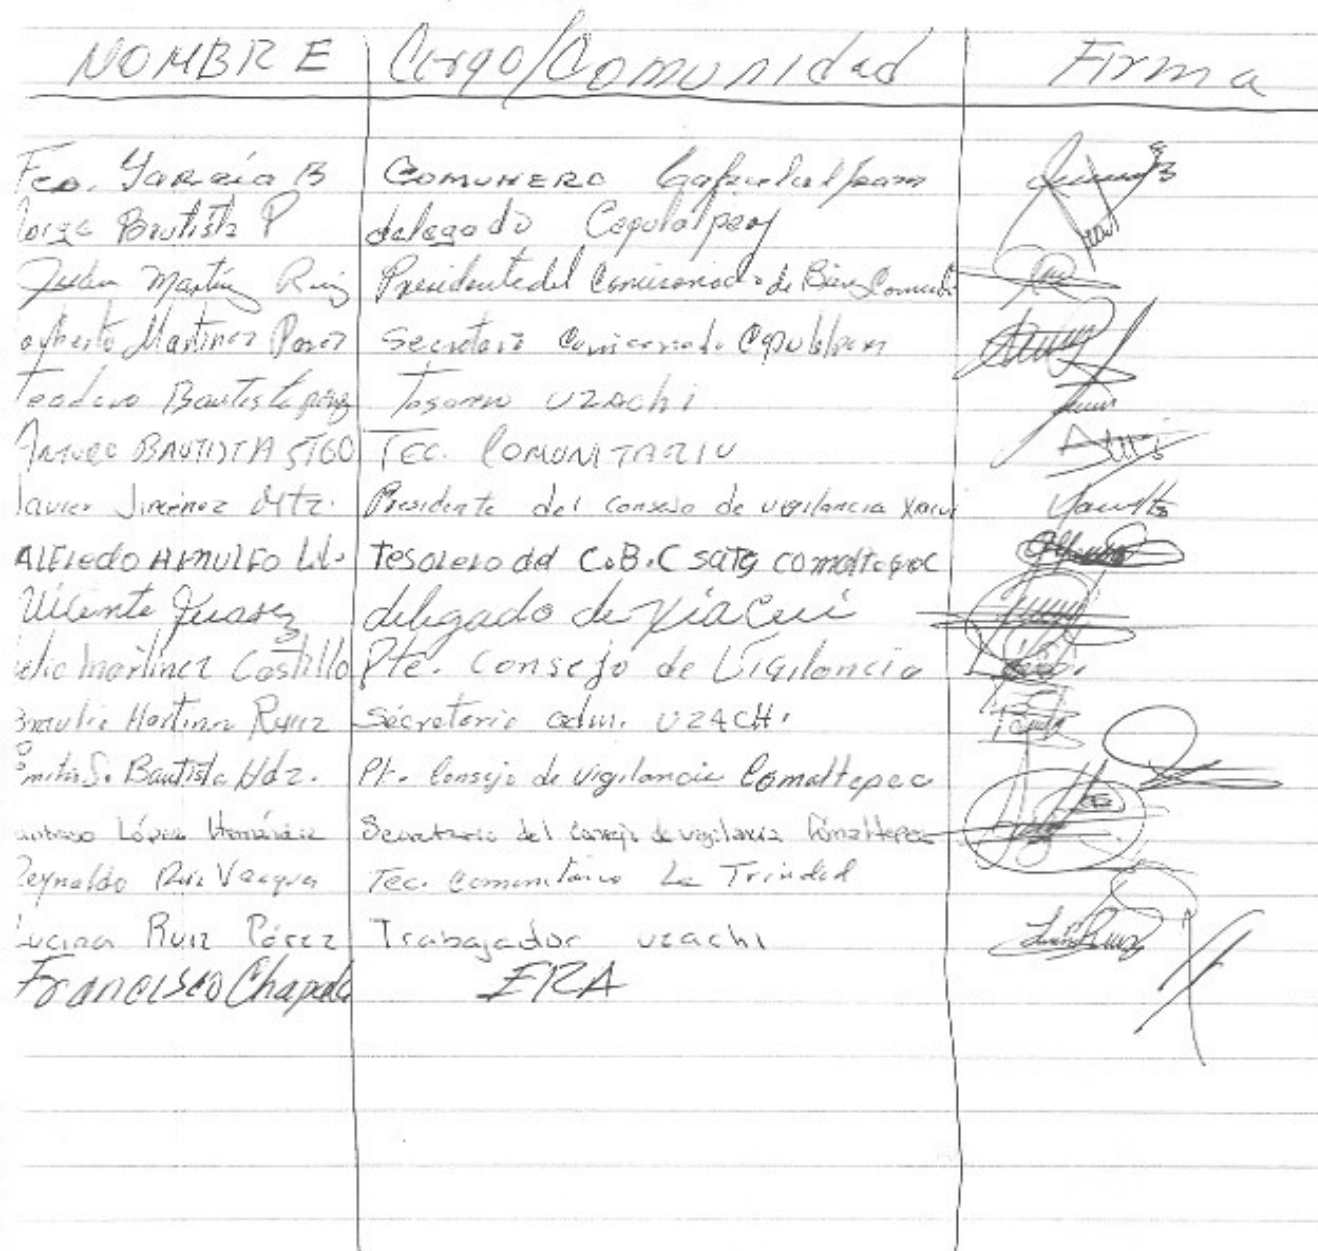 NOMBRE Cargo/Comunidad Firma
Fco. García B Comunero Capulalpam
Jorge Bautista P delegado Capulalpam
Juan Martínez Ruiz Presidente del Comisariado de Bienes
Martinez Perez Secretario Comisariado Capulalpam
Teodoro Bautista perez Tesorero UZACHI
Arturo BAUTISTA STGO TEC. COMUNITARIO
Javier Jimenez Mtz. Presidente del Consejo de vigilancia
ALFredo ARNULFO Tesorero del C.B.C satg comaltepec
Vicente Juarez delegado de Xiacuí
Martinez Castillo Pte. Consejo de Vigilancia
Braulio Martinez Ruiz Secretario adm. UZACHI
S. Bautista Hdz. Pt. Consejo de vigilancia Comaltepec
López Hernández Secretario del Consejo de vigilancia Comaltepec
Reynaldo Ruiz Vasquez Tec. Comunitario La Trinidad
Lucina Ruiz Pérez Trabajador uzachi
Francisco Chapela ERA